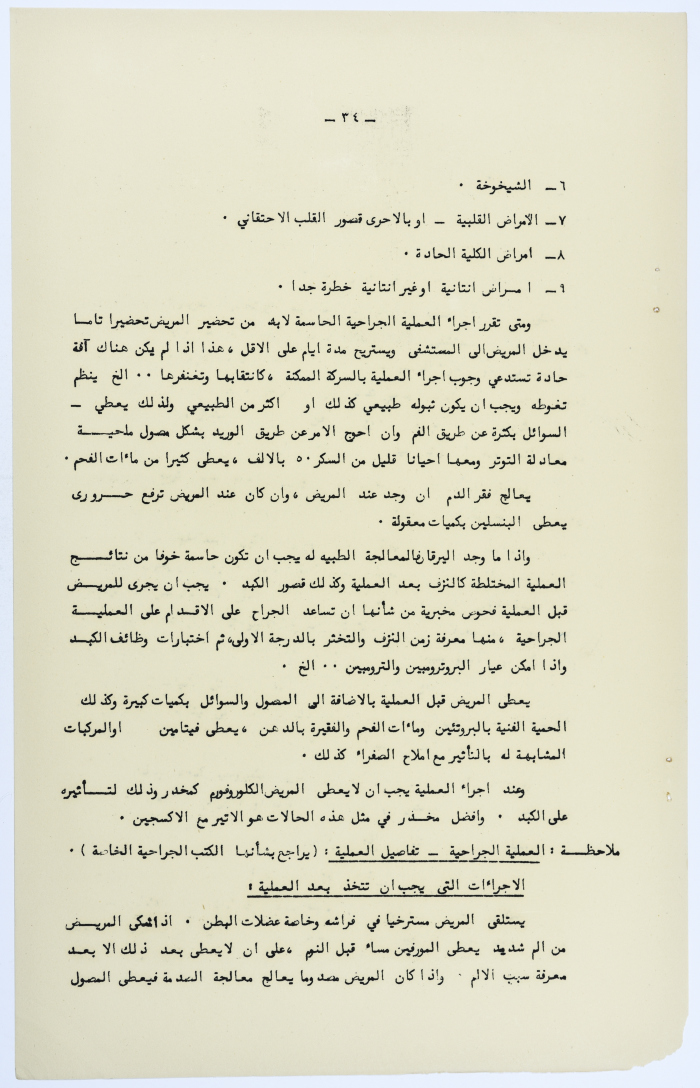 ـ ٣٤ ـ
٦ـ الشيخوخة .
٧ـ الامراض القلبية ـ او بالاحرى قصور القلب الاحتقاني .
٨ـ امراض الكلية الحادة .
٩ـ امراض انتانية او غير انتانية خطرة جدا .
ومتى تقرر اجراء العملية الجراحية الحاسمة لابد من تحضير المريض تحضيرا تاما
يدخل المريض الى المستشفى ويستريح مدة ايام على الاقل ، هذا اذا لم يكن هناك آفة
حادة تستدعي وجوب اجراء العملية بالسرعة الممكنة ، كانثقابها وتغنغرها .. الخ ينظم
تغوطه ويجب ان يكون تبوله طبيعي كذلك او اكثر من الطبيعي ولذلك يعطي ـ
السوائل بكثرة عن طريق الفم وان احوج الامر عن طريق الوريد بشكل مصول ملحية
معادلة التوتر ومعها احيانا قليل من السكر ٥٠ بالالف ، يعطى كثيرا من ماءات الفحم .
يعالج فقر الدم ان وجد عند المريض ، وان كان عند المريض ترفع حروري
يعطى البنسلين بكميات معقولة .
واذا ما وجد اليرقان فالمعالجة الطبيه له يجب ان تكون حاسمة خوفا من نتائج
العملية المختلطة كالنزف بعد العملية وكذلك قصور الكبد . يجب ان يجرى للمريض
قبل العملية فحوص مخبرية من شأنها ان تساعد الجراح على الاقدام على العملية
الجراحية ، منها معرفة زمن النزف والتخثر بالدرجة الاولى ، ثم اختبارات وظائف الكبد
واذا امكن عيار البروترومبين والترومبين .. الخ .
يعطى المريض قبل العملية بالاضافة الى المصول والسوائل بكميات كبيرة وكذلك
الحمية الغنية بالبروتئين وماءات الفحم والفقيرة بالدهن ، يعطى فيتامين اوالمركبات
المشابهة له بالتأثير مع املاح الصفراء كذلك .
وعند اجراء العملية يجب ان لايعطى المريض الكلوروفورم كمخدر وذلك لتأثيره
على الكبد . وافضل مخدر في مثل هذه الحالات هو الاتير مع الاكسجين .
ملاحظة : العملية الجراحية ـ تفاصيل العملية : ( يراجع بشأنها الكتب الجراحية الخاصة ) .
الاجراءات التي يجب ان تتخذ بعد العملية :
يستلقى المريض مسترخيا في فراشه وخاصة عضلات البطن . اذا اشتكى المريض
من الم شديد يعطى المورفين مساء قبل النوم ، على ان لايعطى بعد ذلك الا بعد
معرفة سبب الالم . واذا كان المريض مصدوما يعالج معالجة الصدمة فيعطى المصول